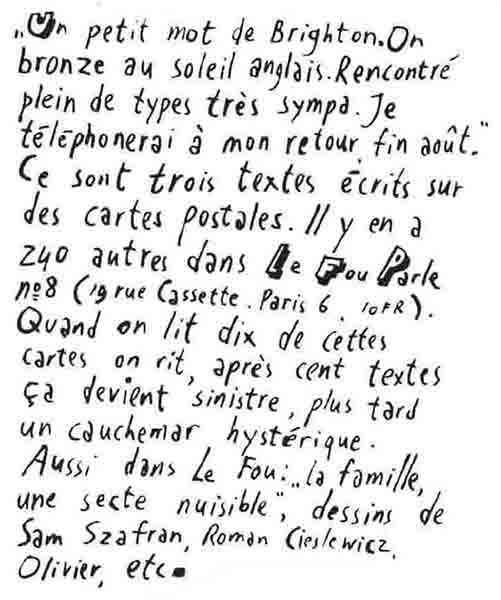 „Un petit mot de Brighton. On
bronze au soleil anglais. Rencontré
plein de types très sympa. Je
téléphonerai à mon retour, fin août."
Ce sont trois textes écrits sur
des cartes postales. Il y en a
240 autres dans Le Fou Parle
nº8 (19 rue Cassette. Paris 6, 10FR).
Quand on lit dix de cettes
cartes on rit, après cent textes
ça devient sinistre, plus tard
un cauchemar hystérique.
Aussi dans Le Fou: „la famille,
une secte nuisible", dessins de
Sam Szafran, Roman Cieslewicz,
Olivier, etc.